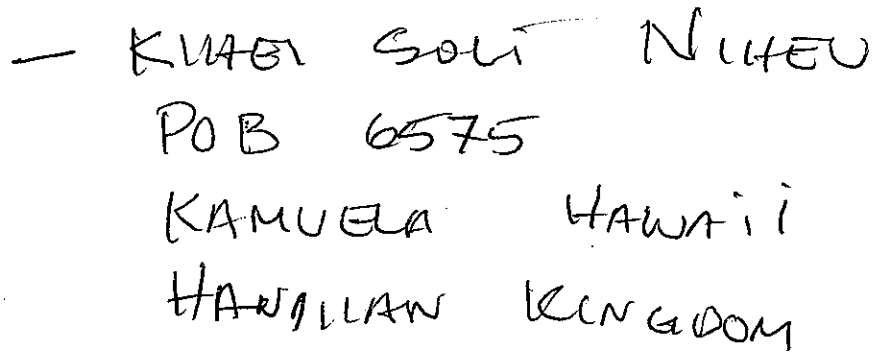 — KIHEI SOLI NIHEU
POB 6575
KAMUELA HAWAI'I
HAWAIIAN KINGDOM